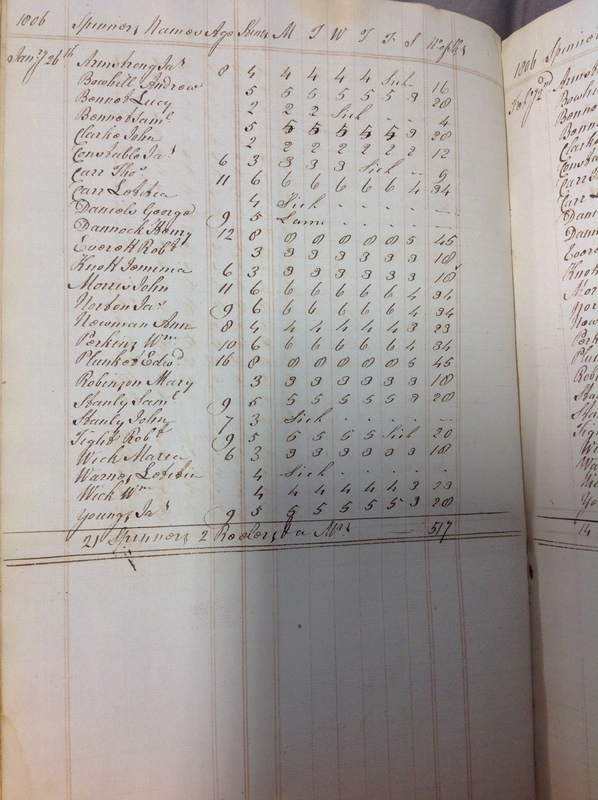 1806 Spinners Names Age M T W T F S
Jan'y 26th Armstrong Jas 8 4 4 4 4 4 Sick - 16
Bowhill Andrew 5 5 5 5 5 5 3 28
Bennet Lucy 2 2 2 Sick - - 4
Bennet Saml 5 5 5 5 5 5 3 28
Clarke John 2 2 2 2 2 2 2 12
Constable Jas 6 3 3 3 3 Sick - 9
Carr Thos 11 6 6 6 6 6 6 4 34
Carr Letitia 4 Sick - - - - —
Daniels George 9 5 Lame - - - - —
Dannock Henry 12 8 8 8 8 8 8 5 45
Everett Robt 3 3 3 3 3 3 3 18
Knott Jemima 6 3 3 3 3 3 3 3 18
Morris John 11 6 6 6 6 6 6 4 34
Norton Jas 9 6 6 6 6 6 6 4 34
Newman Ann 8 4 4 4 4 4 4 3 23
Perkins Wm 10 6 6 6 6 6 6 4 34
Plunket Edwd 16 8 8 8 8 8 8 5 45
Robinson Mary 3 3 3 3 3 3 3 18
Stanly Saml 9 5 5 5 5 5 5 3 28
Stanly John 7 3 Sick - - - - —
Tight Robt 9 5 5 5 5 5 Sick 20
Week Maria 6 3 3 3 3 3 3 3 18
Warnes Letitia 4 Sick - - - - -
Wick Wm 4 4 4 4 4 4 3 23
Youngs Jas 9 5 5 5 5 5 5 3 28
21 Spinners 2 517
1806 Spinners
Feb'y 2nd
14